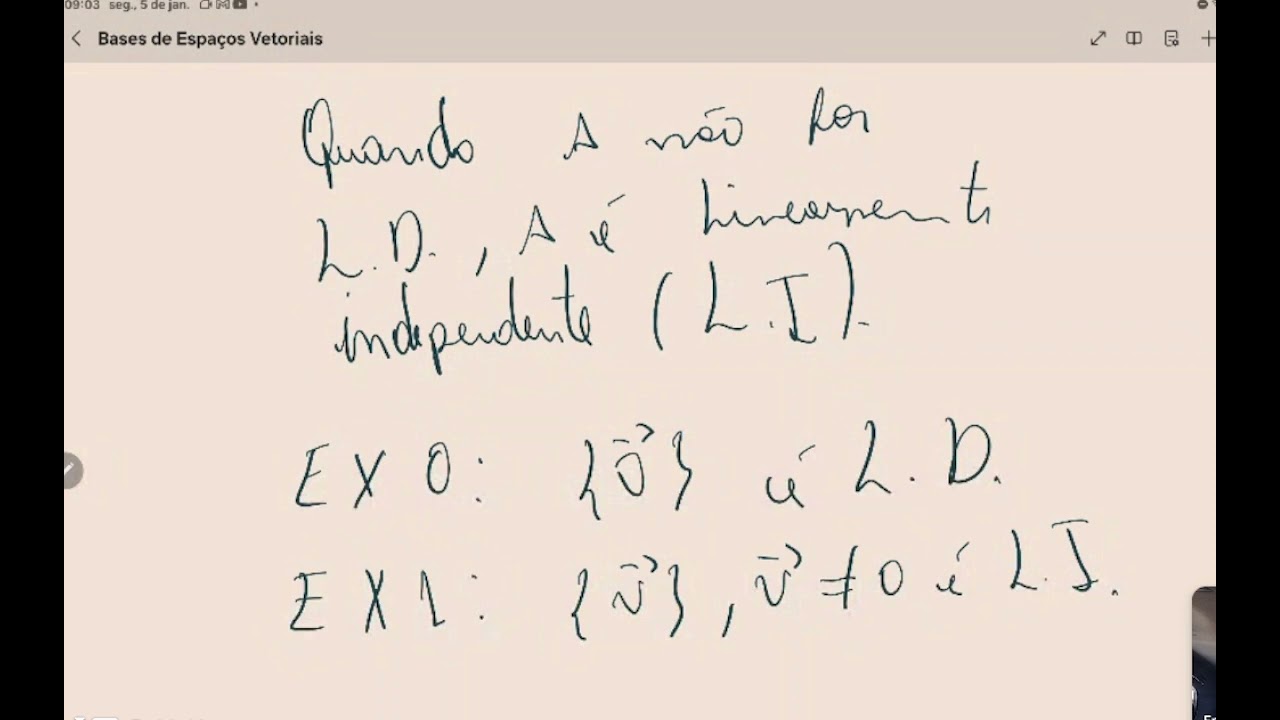 09:03 seg., 5 de jan.
Bases de Espaços Vetoriais
Quando A não for
L.D., A é Linearmente
independente (L.I).
EX 0: {0⃗} é L.D.
EX 1: {v⃗}, v⃗ ≠ 0 é L.I.